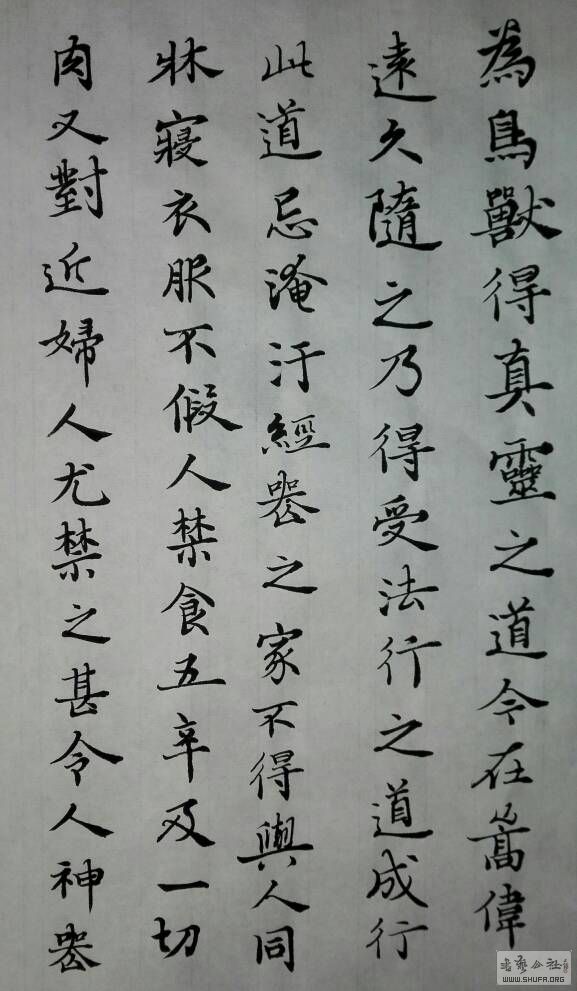 為鳥獸得真靈之道今在嵩偉
遠久隨之乃得受法行之道成行
此道忌淹汙經喪之家不得與人同
牀寢衣服不假人禁食五辛及一切
肉又對近婦人尤禁之甚令人神喪
书艺公社
WWW.SHUFA.ORG